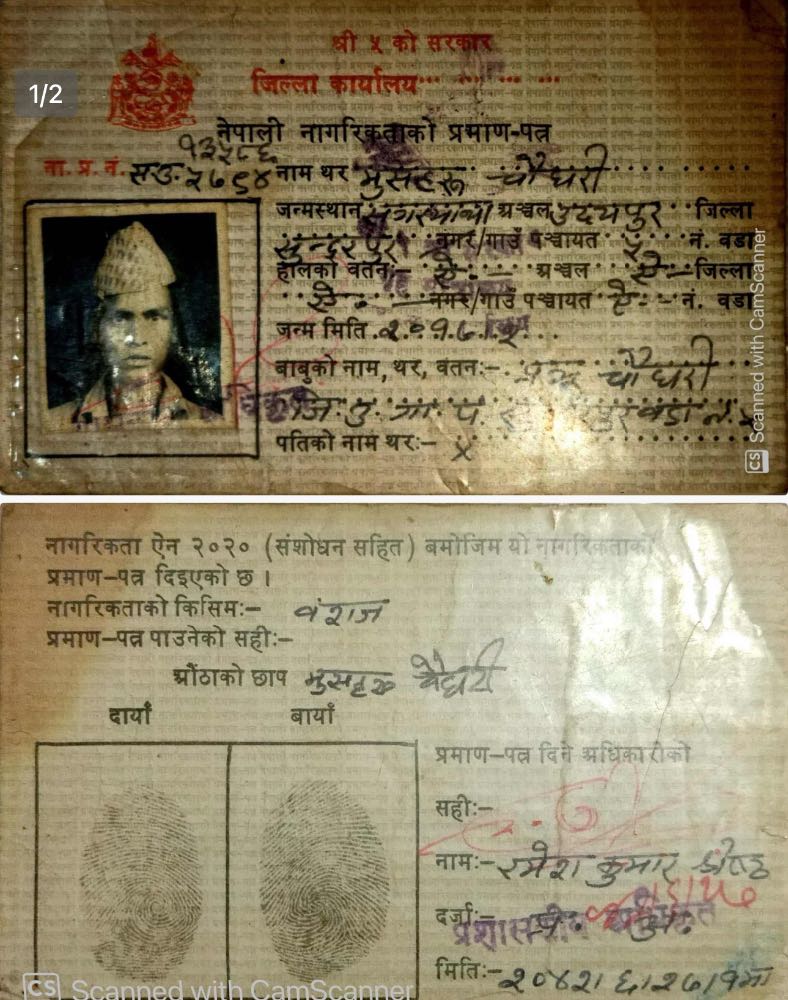 1/2
श्री ५ को सरकार
जिल्ला कार्यालय
नेपाली नागरिकताको प्रमाण-पत्र
ना. प्र. नं.
नाम थर मुसहरू चौधरी
जन्मस्थान सगरमाथा अञ्चल उदयपुर जिल्ला
सुन्दरपुर नगर/गाउँ पञ्चायत ५ नं. वडा
हालको वतन:- ऐ. अञ्चल ऐ. जिल्ला
ऐ. नगर/गाउँ पञ्चायत ऐ. नं. वडा
जन्म मिति
बाबुको नाम, थर, वतन:- चौधरी
वडा नं. ५
पतिको नाम थर:- x
नागरिकता ऐन २०२० (संशोधन सहित) बमोजिम यो नागरिकताको
प्रमाण-पत्र दिइएको छ ।
नागरिकताको किसिम:- वंशज
प्रमाण-पत्र पाउनेको सही:-
औंठाको छाप मुसहरू चौधरी
दायाँ बायाँ
प्रमाण-पत्र दिने अधिकारीको
सही:-
नाम:- रमेश कुमार
दर्जा:-
मिति:-
CS Scanned with CamScanner
CS Scanned with CamScanner